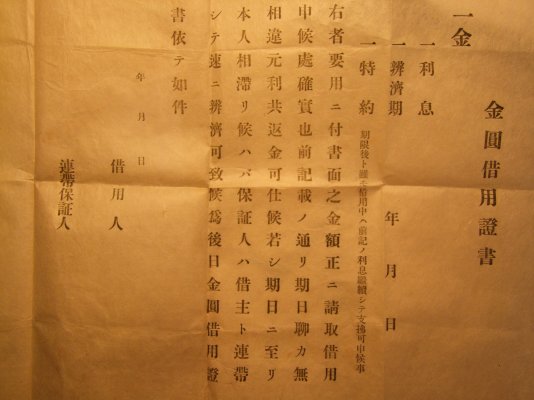 金圓借用證書
一金
一利息
一辨濟期　年　月　日
一特約　期限後ト雖モ借用中ハ前記ノ利息繼續シテ支拂可申候事
右者要用ニ付書面之金額正ニ請取借用
申候處確實也前記載ノ通リ期日聊カ無
相違元利共返金可仕候若シ期日ニ至リ
本人相滯リ候ハバ保証人ハ借主ト連帶
シテ速ニ辨濟可致候爲後日金圓借用證
書依テ如件
年　月　日
借用人
連帶保証人